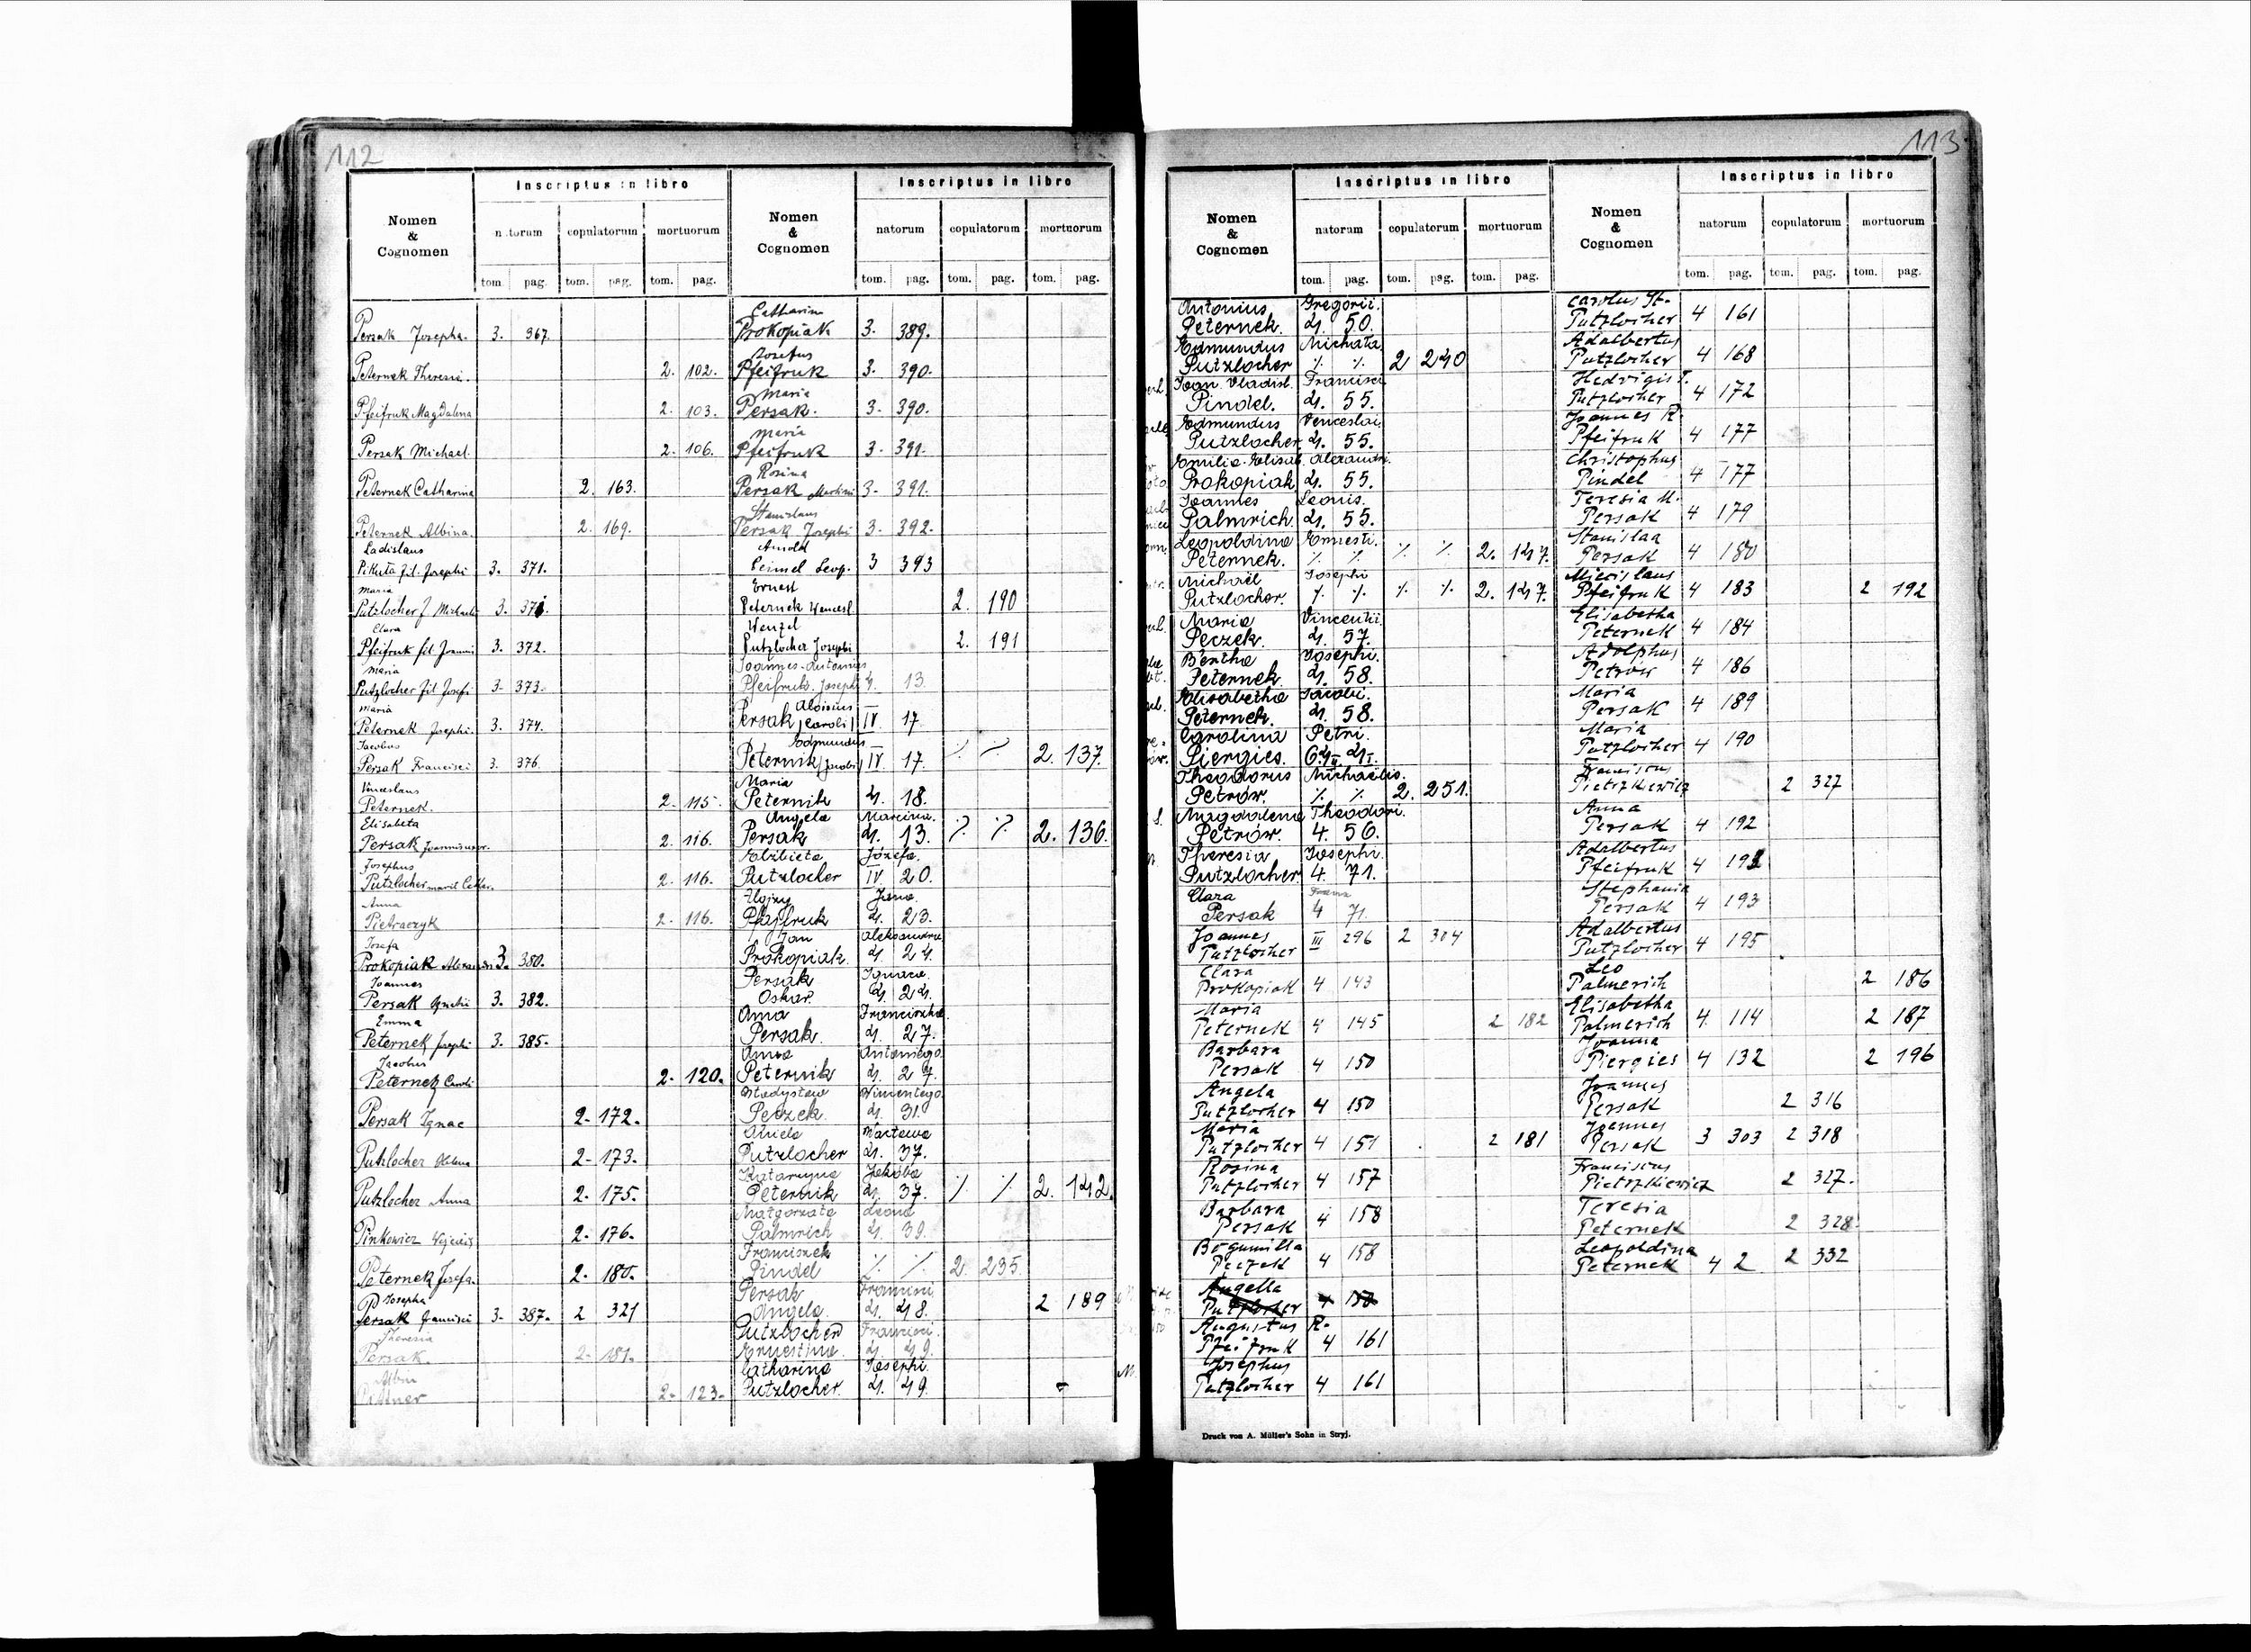 112
Inscriptus in libro
Nomen & Cognomen
natorum copulatorum mortuorum
tom. pag. tom. pag. tom. pag.
Persak Josepha. 3. 367.
Peternek Theresia. 2. 102.
Pfeifruk Magdalena 2. 103.
Persak Michael. 2. 106.
Peternek Catharina 2. 163.
Peternek Albina. 2. 169.
Ladislaus
Pikuta fil. Josephi 3. 371.
Maria
Putzlocher f Michaeli 3.
Clara
Pfeifruk fil Joannis 3. 372.
Maria
Putzlocher fil Josefi 3. 373.
Maria
Peternek Josephi. 3. 374.
Jacobus
Persak Francisci 3. 376.
Venceslaus
Peternek. 2. 115.
Elisabeta
Persak 2. 116.
Josephus
Putzlocher 2. 116.
Anna
Pietraczyk 2. 116.
Josefa
Prokopiak 3. 380.
Joannes
Persak Ignatii 3. 382.
Emma
Peternek Josephi 3. 385.
Jacobus
Peternek Caroli 2. 120.
Persak Ignac 2. 172.
Putzlocher Helena 2. 173.
Putzlocher Anna 2. 175.
Pinkowicz 2. 176.
Peternek Josefa. 2. 180.
Josepha
Persak Francisci 3. 387. 2 321
Theresia
Persak. 2. 181.
Albin
2. 123.
Inscriptus in libro
Nomen & Cognomen
natorum copulatorum mortuorum
tom. pag. tom. pag. tom. pag.
Catharina
Prokopiak 3. 389.
Josefus
Pfeifruk 3. 390.
Maria
Persak. 3. 390.
Maria
Pfeifruk 3. 391.
Rosina
Persak Martini 3. 391.
Stanislaus
Persak Josephi 3. 392.
Arnold
Leop. 3 393
Ernest
Peternek Wencesl. 2. 190
Wenzel
Putzlocher Josephi 2. 191
Joannes-Antonius
Pfeifruk. Josephi 4. 13.
Aloisius
Persak /Caroli/ IV 17.
Edmundus
Peternik /Jacobi/ IV. 17. ⁒ ⁒ 2. 137.
Maria
Peternik 4. 18.
Angela Marcina.
Persak 4. 13. ⁒ ⁒ 2. 136.
Elżbieta Józefa.
Putzlocher IV 20.
Alojzy Jana.
Pfajfruk 4. 23.
Jan Aleksandra
Prokopiak. 4. 24.
Persak Ignaca.
Oskar. 4. 24.
Anna Franciszka.
Persak. 4. 27.
Anna Antoniego.
Peternik 4. 27.
Władysław Wincentego.
Peczek. 4. 31.
Aniela Wacława
Putzlocher 4. 37.
Katarzyna Jakóba
Peternik 4. 37. ⁒ ⁒ 2. 142.
Małgorzata Leona
Palmrich 4. 39.
Franciszek
Pindel ⁒ ⁒ 2. 235.
Persak Francisci
Angela. 4. 48. 2 189
Putzlocher Francisci.
Ernestina. 4. 49.
Catharina Josephi.
Putzlocher. 4. 49.
113
Inscriptus in libro
Nomen & Cognomen
natorum copulatorum mortuorum
tom. pag. tom. pag. tom. pag.
Antonius Gregorii.
Peternek. 4. 50.
Edmundus Michała.
Putzlocher ⁒ ⁒ 2 240
Joan. Vladisl. Francisci.
Pindel. 4. 55.
Edmundus Venceslai.
Putzlocher 4. 55.
Emilia-Elisab. Alexandri.
Prokopiak 4. 55.
Joannes Leonis.
Palmrich. 4. 55.
Leopoldina Ernesti.
Peternek. ⁒ ⁒ ⁒ ⁒ 2. 147.
Michaël Josephi
Putzlocher. ⁒ ⁒ ⁒ ⁒ 2. 147.
Maria Vincentii.
Peczek. 4. 57.
Bertha Josephi.
Peternek. 4. 58.
Elisabetha Jacobi.
Peternek. 4. 58.
Carolina Petri.
Piergies.
Theodorus Michaelis.
Petrów. ⁒ ⁒ 2. 251.
Magdalena Theodori.
Petrów. 4. 56.
Theresia Josephi.
Putzlocher 4. 71.
Clara
Persak 4 71.
Joannes
Putzlocher III 296 2 304
Clara
Prokopiak 4 143
Maria
Peternek 4 145 2 182
Barbara
Persak 4 150
Angela
Putzlocher 4 150
Maria
Putzlocher 4 151 2 181
Rosina
Putzlocher 4 157
Barbara
Persak 4 158
Bogumilla
Peczek 4 158
Angella
Putzlocher 4 150
Augustus R.
Pfeifruk 4 161
Josephus
Putzlocher 4 161
Inscriptus in libro
Nomen & Cognomen
natorum copulatorum mortuorum
tom. pag. tom. pag. tom. pag.
Carolus St.
Putzlocher 4 161
Adalbertus
Putzlocher 4 168
Hedvigis T.
Putzlocher 4 172
Joannes R.
Pfeifruk 4 177
Christophus
Pindel 4 177
Teresia M.
Persak 4 179
Stanislaa
Persak 4 180
Miecislaus
Pfeifruk 4 183 2 192
Elisabetha
Peternek 4 184
Adolphus
Petrów 4 186
Maria
Persak 4 189
Maria
Putzlocher 4 190
Franciscus
Pietrzkiewicz 2 327
Anna
Persak 4 192
Adalbertus
Pfeifruk 4
Stephania
Persak 4 193
Adalbertus
Putzlocher 4 195
Leo
Palmerich 2 186
Elisabetha
Palmerich 4 114 2 187
Joanna
Piergies 4 132 2 196
Joannes
Persak 2 316
Joannes
Persak 3 303 2 318
Franciscus
Pietrzkiewicz 2 327.
Teresia
Peternek 2 328
Leopoldina
Peternek 4 2 2 332
Druck von A. Müller's Sohn in Stryj.